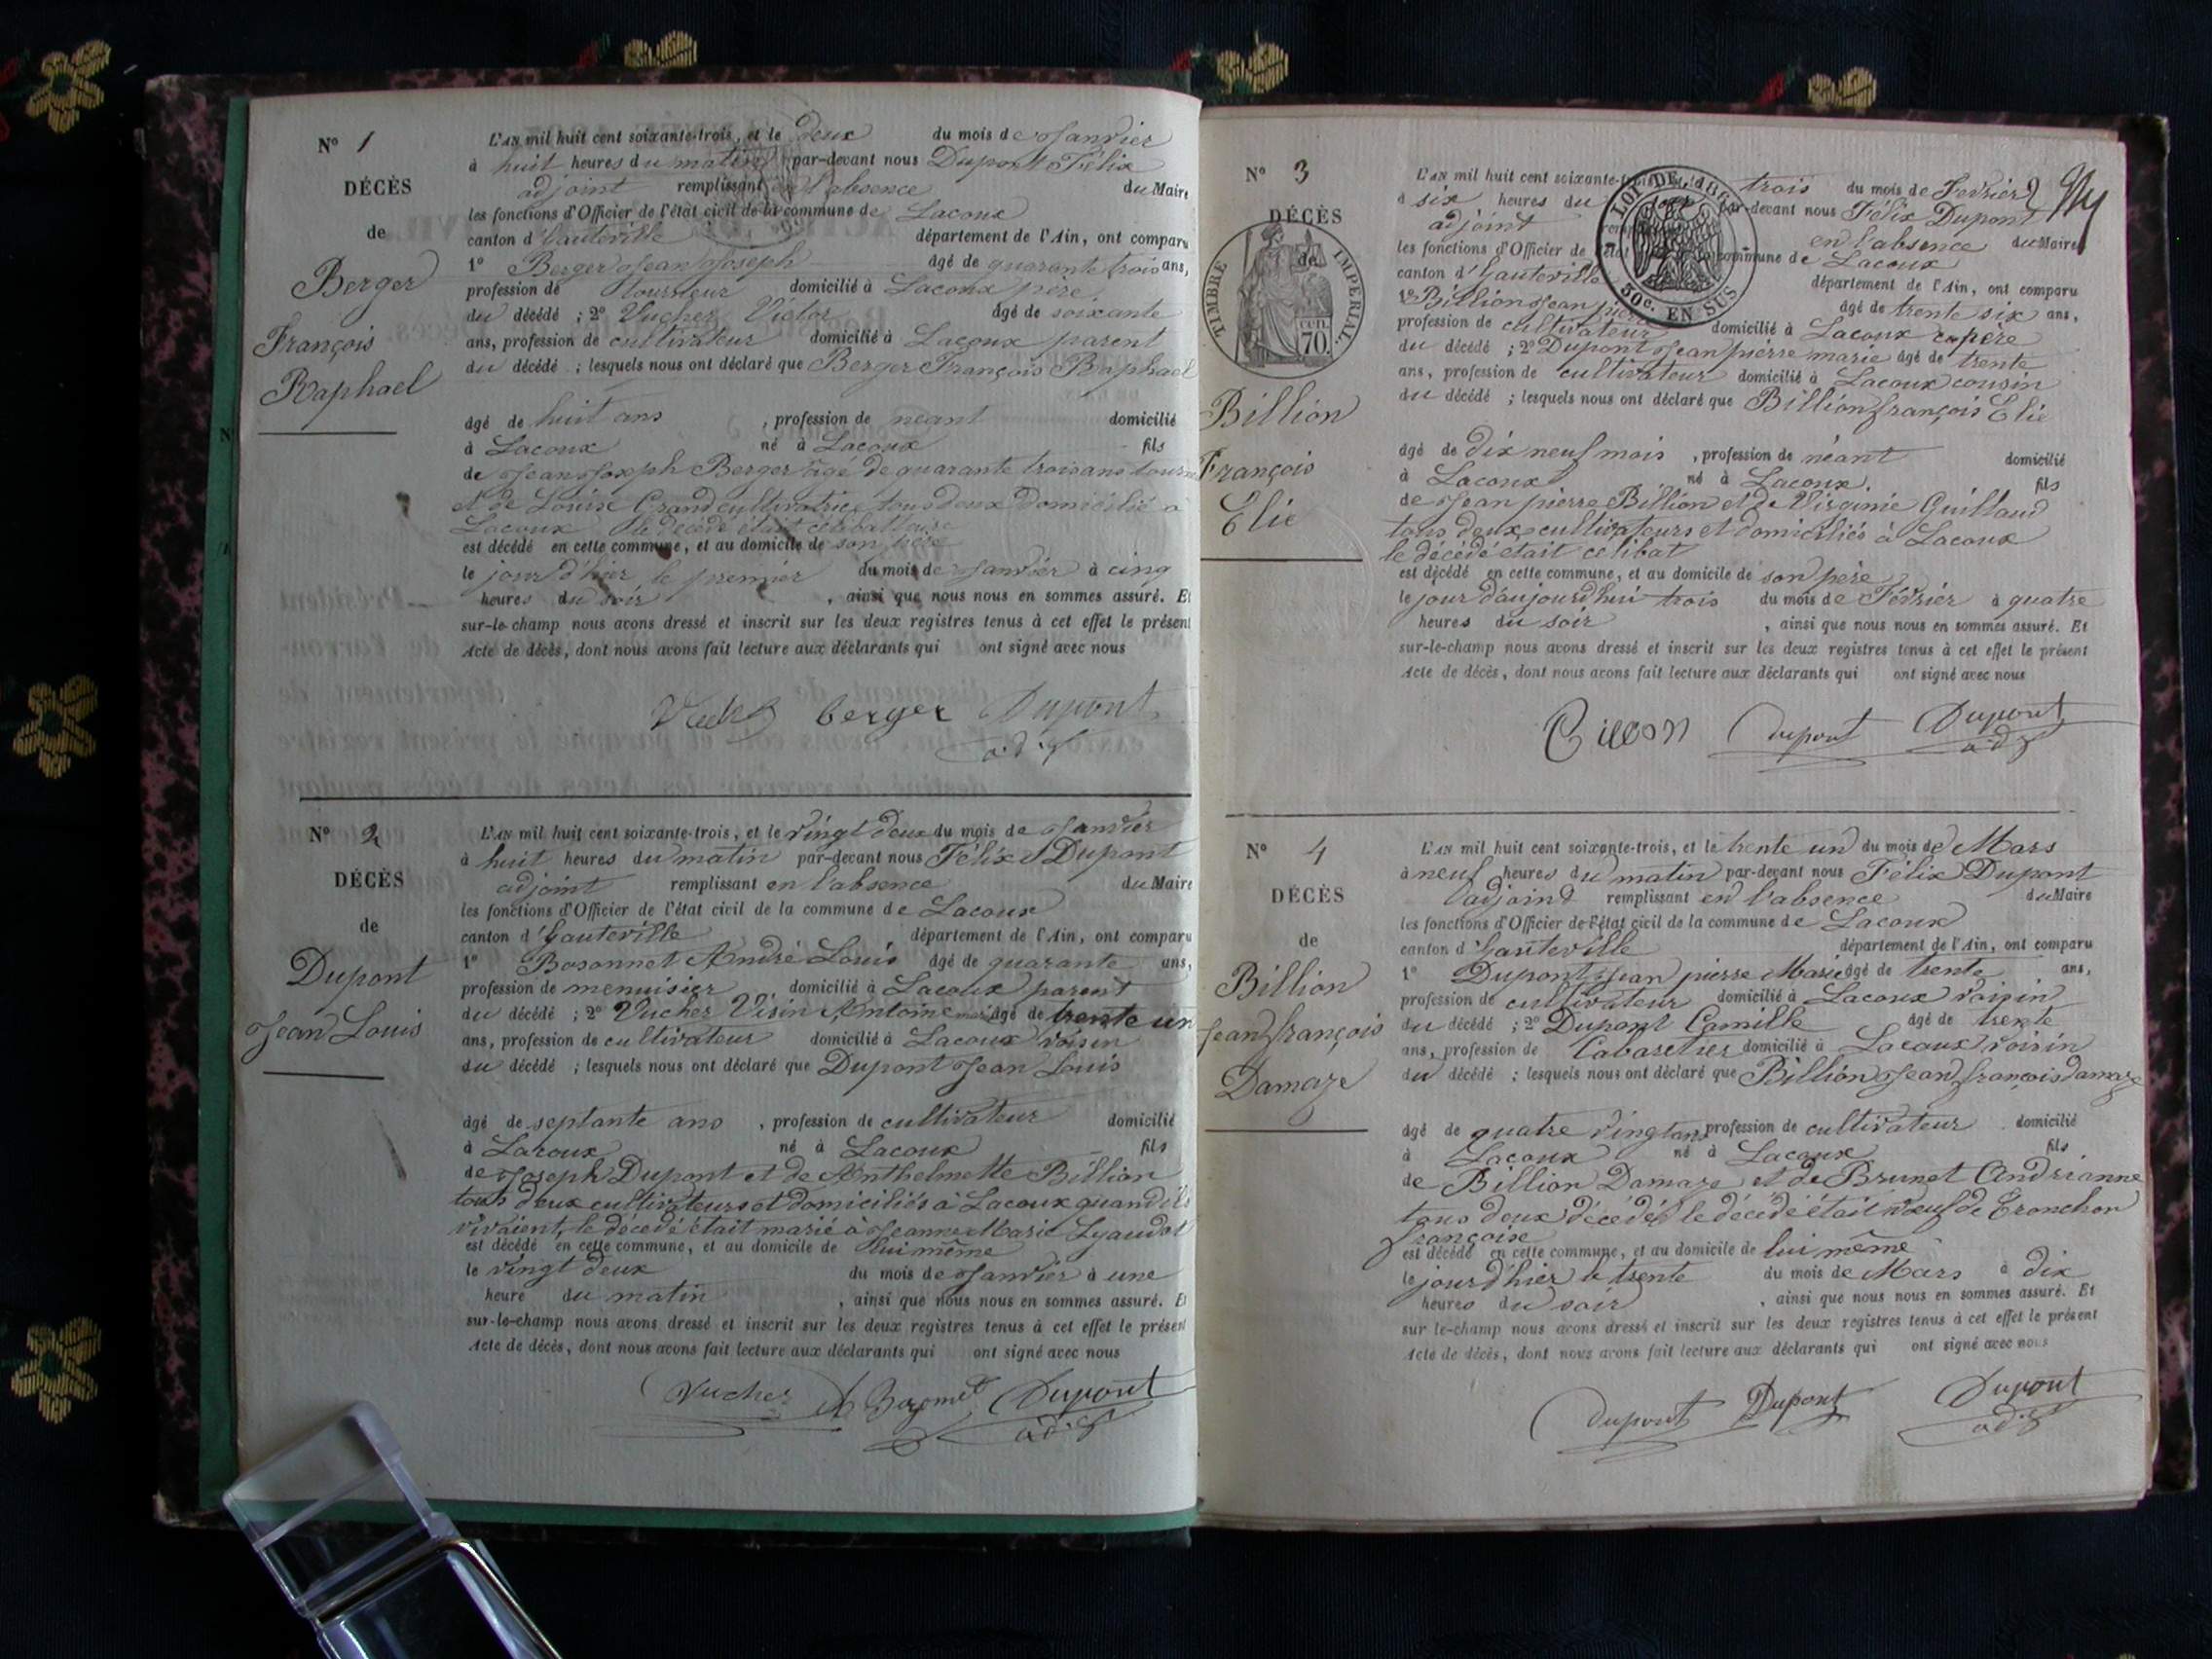 N° 1
DÉCÈS
de
Berger
François
Raphael
L'AN mil huit cent soixante-trois, et le deux du mois de Janvier
à huit heures du matin par-devant nous Dupont Félix
adjoint remplissant en l'absence du Maire
les fonctions d'Officier de l'état civil de la commune de Lacoux
canton d'hauteville département de l'Ain, ont comparu
1° Berger Jean Joseph âgé de quarante trois ans,
profession de tourneur domicilié à Lacoux père
du décédé ; 2° Vucher Victor âgé de soixante
ans, profession de cultivateur domicilié à Lacoux parent
du décédé ; lesquels nous ont déclaré que Berger François Raphael
âgé de huit ans , profession de néant domicilié
à Lacoux né à Lacoux fils
de Jean Joseph Berger âgé de quarante trois ans
et de Louise Grand cultivatrice tous deux domicilié à
Lacoux le décédé était célibataire
est décédé en cette commune, et au domicile de son père
le jour d'hier le premier du mois de Janvier à cinq
heures du soir , ainsi que nous nous en sommes assuré. Et
sur-le-champ nous avons dressé et inscrit sur les deux registres tenus à cet effet le présent
Acte de décès, dont nous avons fait lecture aux déclarants qui ont signé avec nous
berger Dupont
adj
N° 2
DÉCÈS
de
Dupont
Jean Louis
L'AN mil huit cent soixante-trois, et le vingt deux du mois de Janvier
à huit heures du matin par-devant nous Félix Dupont
adjoint remplissant en l'absence du Maire
les fonctions d'Officier de l'état civil de la commune de Lacoux
canton d'hauteville département de l'Ain, ont comparu
1° Bosonnet André Louis âgé de quarante ans,
profession de menuisier domicilié à Lacoux parent
du décédé ; 2° Vucher Visin Antoine âgé de trente un
ans, profession de cultivateur domicilié à Lacoux voisin
du décédé ; lesquels nous ont déclaré que Dupont Jean Louis
âgé de septante ans , profession de cultivateur domicilié
à Lacoux né à Lacoux fils
de Joseph Dupont et de Anthelmette Billion
tous deux cultivateurs et domiciliés à Lacoux quand ils
vivaient, le décédé était marié à Jeanne Marie
est décédé en cette commune, et au domicile de lui même
le vingt deux du mois de Janvier à une
heure du matin , ainsi que nous nous en sommes assuré. Et
sur-le-champ nous avons dressé et inscrit sur les deux registres tenus à cet effet le présent
Acte de décès, dont nous avons fait lecture aux déclarants qui ont signé avec nous
Vucher Dupont
adj
N° 3
DÉCÈS
de
TIMBRE IMPÉRIAL
CEN. 70.
Billion
François
Elie
LOI DE
50c. EN SUS
L'AN mil huit cent soixante-trois trois du mois de Fevrier
à six heures du par-devant nous Félix Dupont
adjoint en l'absence du Maire
les fonctions d'Officier de l'état commune de Lacoux
canton d'hauteville département de l'Ain, ont comparu
1° Billion Jean pierre âgé de trente six ans,
profession de cultivateur domicilié à Lacoux père
du décédé ; 2° Dupont Jean pierre marie âgé de trente
ans, profession de cultivateur domicilié à Lacoux cousin
du décédé ; lesquels nous ont déclaré que Billion françois Elie
âgé de dix neuf mois , profession de néant domicilié
à Lacoux né à Lacoux. fils
de Jean pierre Billion et de Virginie Guilland
tous deux cultivateurs et domiciliés à Lacoux
le décédé était celibat
est décédé en cette commune, et au domicile de son père
le jour d'aujourd'hui trois du mois de Février à quatre
heures du soir , ainsi que nous nous en sommes assuré. Et
sur-le-champ nous avons dressé et inscrit sur les deux registres tenus à cet effet le présent
Acte de décès, dont nous avons fait lecture aux déclarants qui ont signé avec nous
dupont Dupont
adj
N° 4
DÉCÈS
de
Billion
Jean françois
Damaze
L'AN mil huit cent soixante-trois, et le trente un du mois de Mars
à neuf heures du matin par-devant nous Félix Dupont
adjoind remplissant en l'absence du Maire
les fonctions d'Officier de l'état civil de la commune de Lacoux
canton d'hauteville département de l'Ain, ont comparu
1° Dupont Jean pierre Marie âgé de trente ans,
profession de cultivateur domicilié à Lacoux voisin
du décédé ; 2° Dupont Camille âgé de trente
ans, profession de Cabaretier domicilié à Lacoux voisin
du décédé ; lesquels nous ont déclaré que Billion Jean françois damaze
âgé de quatre vingt ans profession de cultivateur domicilié
à Lacoux né à Lacoux fils
de Billion Damaze et de Brunet Andrianne
tous deux décédés le décédé était veuf de Tronchon
françoise
est décédé en cette commune, et au domicile de lui même
le jour d'hier le trente du mois de Mars à dix
heures du soir , ainsi que nous nous en sommes assuré. Et
sur-le-champ nous avons dressé et inscrit sur les deux registres tenus à cet effet le présent
Acte de décès, dont nous avons fait lecture aux déclarants qui ont signé avec nous
dupont Dupont Dupont
adj